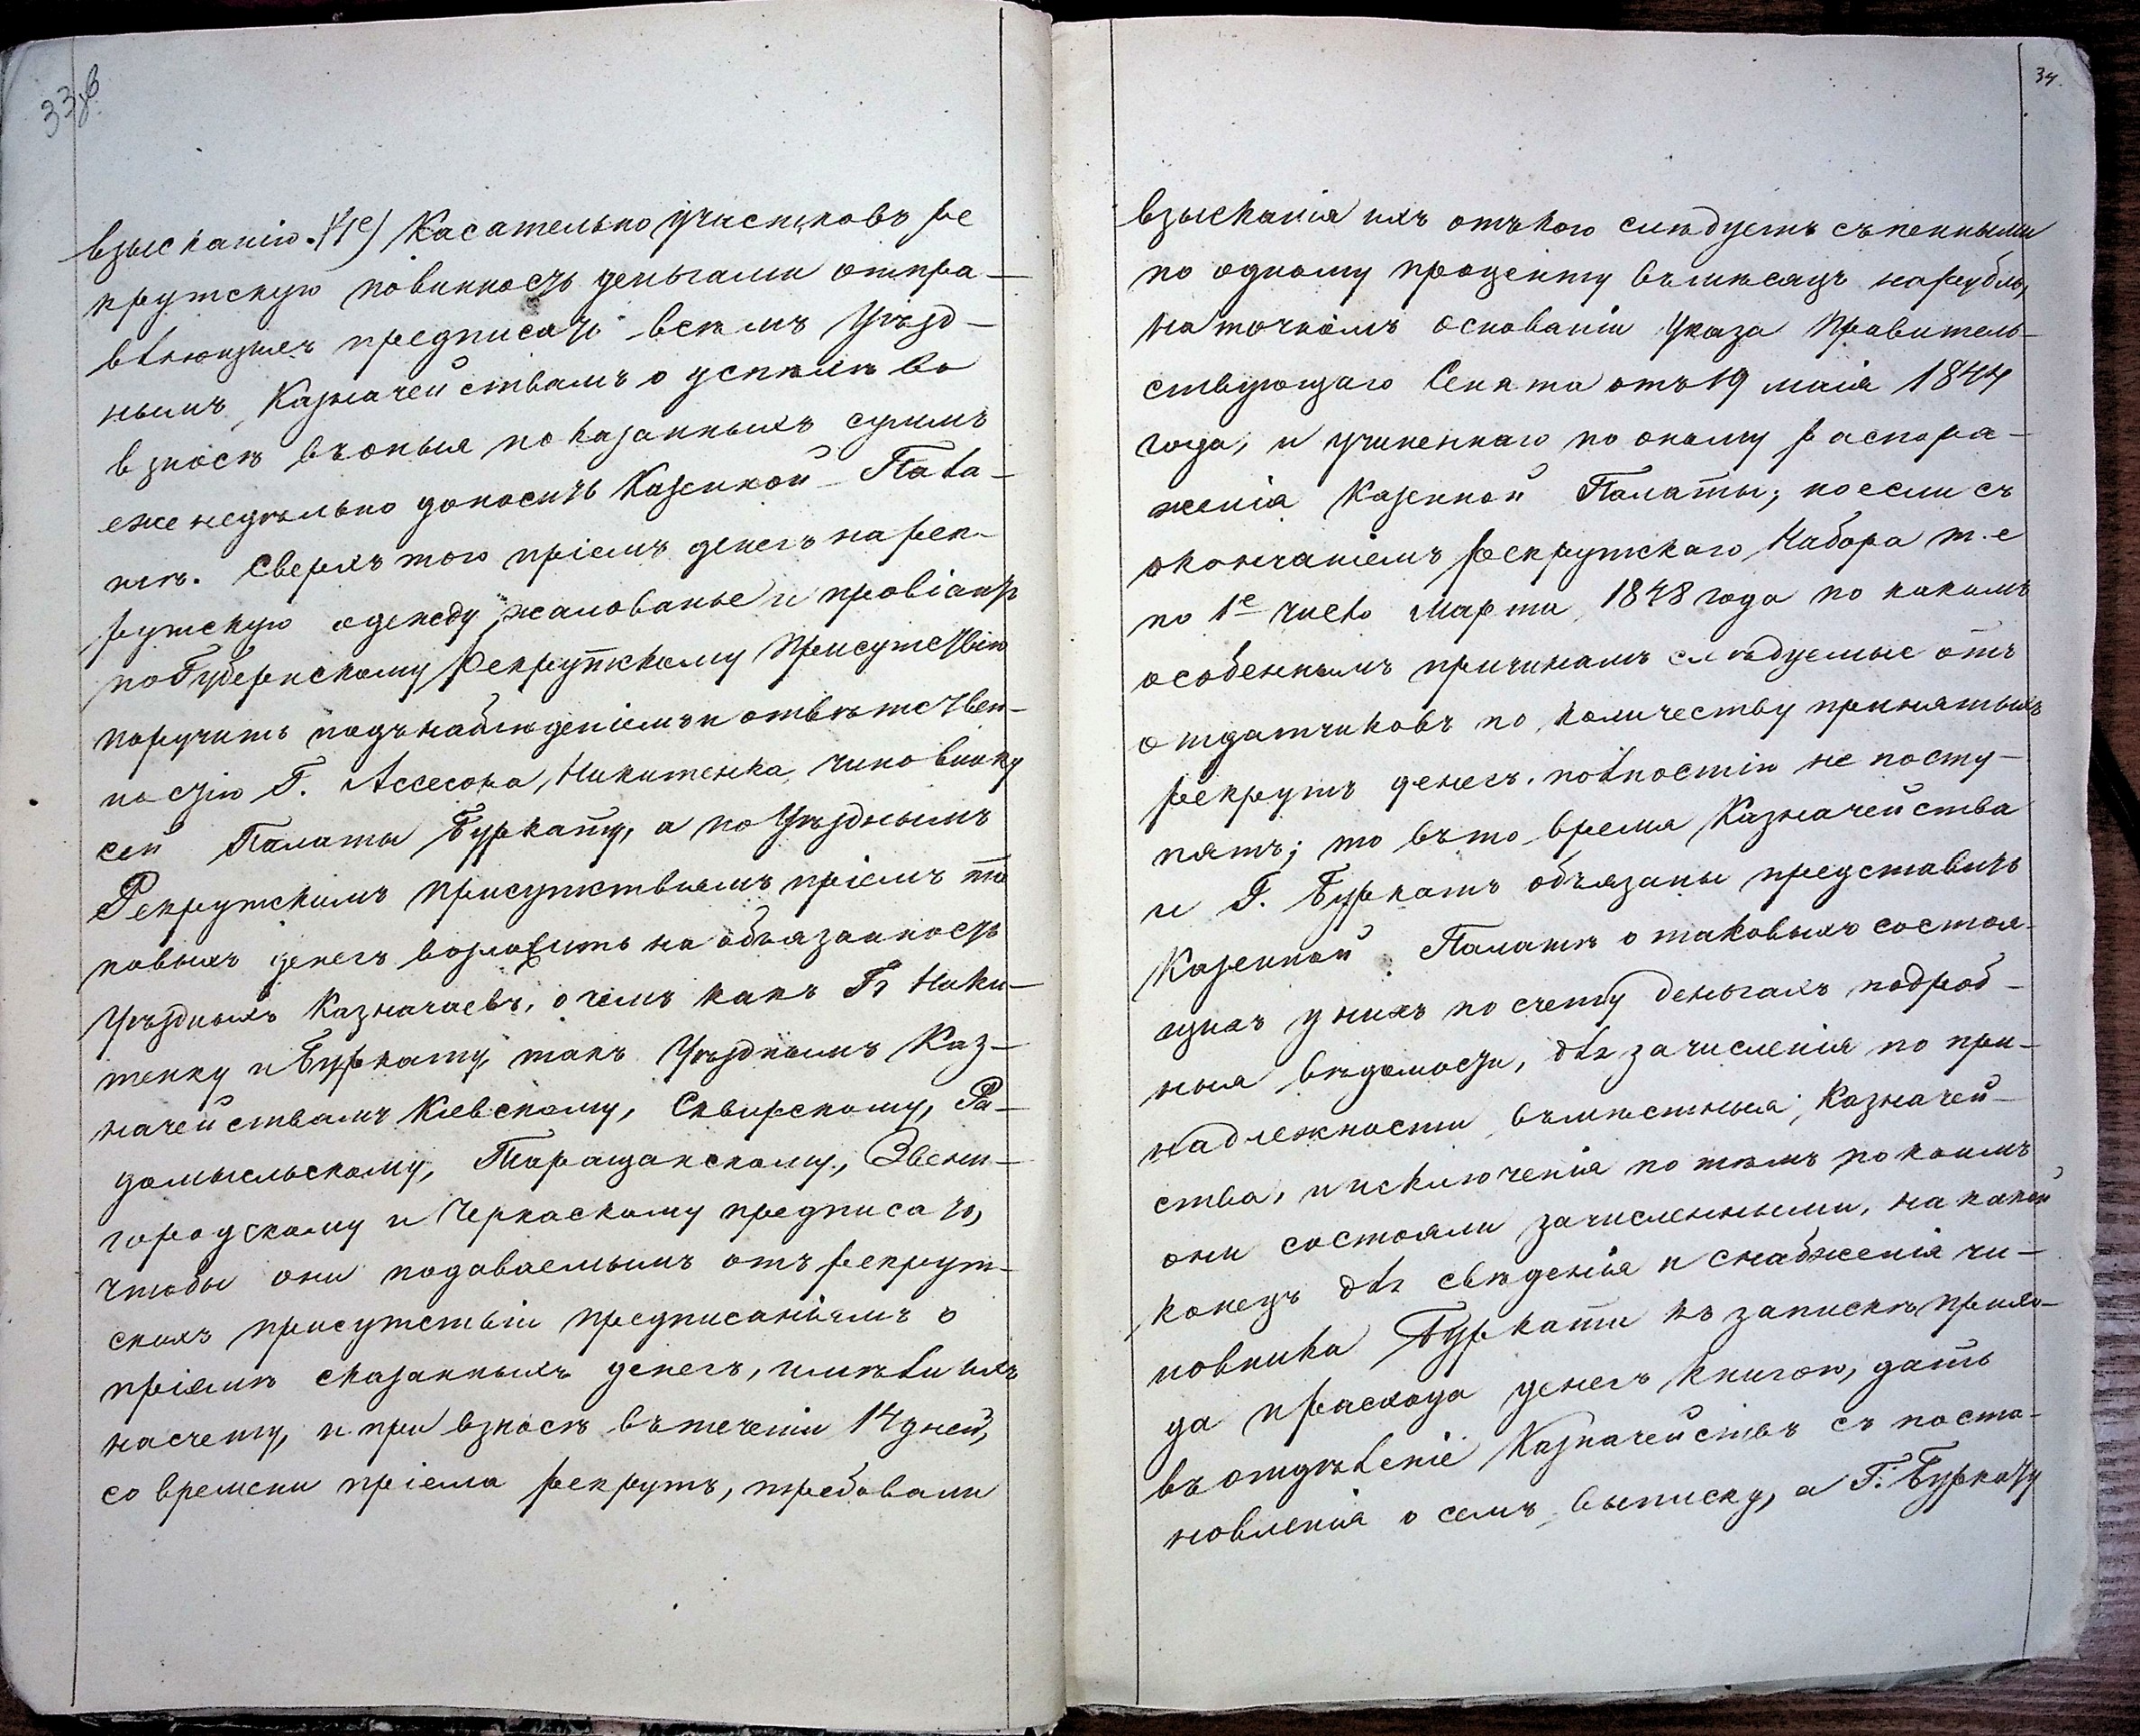 33об
взысканію. 4е) Касательно участковъ ре
крутскую повинность деньгами отпра-
вляющихъ предписать всѣмъ Уѣзд-
нымъ Казначействамъ о успѣхѣ во
взносѣ въ оныя показанныхъ суммъ
еженедѣльно доносить Казенной Пала-
тѣ. Сверхъ того пріемъ денегъ на рек-
рутскую одежду, жалованье и провіантъ
по Губернскому Рекрутскому Присутствію
поручить подъ наблюденіемъ и отвѣтствен-
ностію Г. Ассесора Никитенка чиновнику
сей Палаты Буркату, а по Уѣзднымъ
Рекрутскимъ Присутствіямъ пріемъ та
ковыхъ денегъ возложить на обязанность
Уѣздныхъ Казначаевъ, о чемъ какъ Гг Ники-
тенку и Буркату, такъ Уѣзднымъ Каз-
начействамъ Кіевскому, Сквирскому, Ра-
домысльскому, Таращанскому, Звени-
городскому и Черкаскому предписать,
чтобы они подаваемымъ отъ рекрут-
скихъ присутствій предписаніямъ о
пріемѣ сказанныхъ денегъ, имѣли ихъ
на счету, и при взносѣ въ теченіи 14 дней,
со времени пріема рекрутъ, требовали
34.
взысканія ихъ отъ кого слѣдуетъ съ пенными
по одному проценту въ мѣсяцъ на рубль,
на точномъ основаніи Указа Правитель-
ствующаго Сената отъ 19 маія 1844
года, и учиненнаго по оному распоря-
женія Казенной Палаты; но если съ
окончаніемъ рекрутскаго Набора т.е
по 1е число Марта 1848 года по какимъ
особеннымъ причинамъ слѣдуемые отъ
отдатчиковъ по количеству принятыхъ
рекрутъ денегъ, полностію не посту-
пятъ; то въ то время Казначейства
и Г. Буркатъ обязаны представить
Казенной Палатѣ о таковыхъ состоя-
щихъ у нихъ по счету деньгахъ подроб-
ныя вѣдомости, для зачисленія по при-
надлежности въ мѣстныя Казначей-
ства, и исключенія по тѣмъ по коимъ
они состояли зачисленными, на какой
конецъ для свѣденія и снабженія чи-
новника Бурката къ запискѣ прихо-
да и расхода денегъ книгою, дать
въ отдѣленіе Казначействъ съ поста-
новленія о семъ выписку, а Г. Буркату